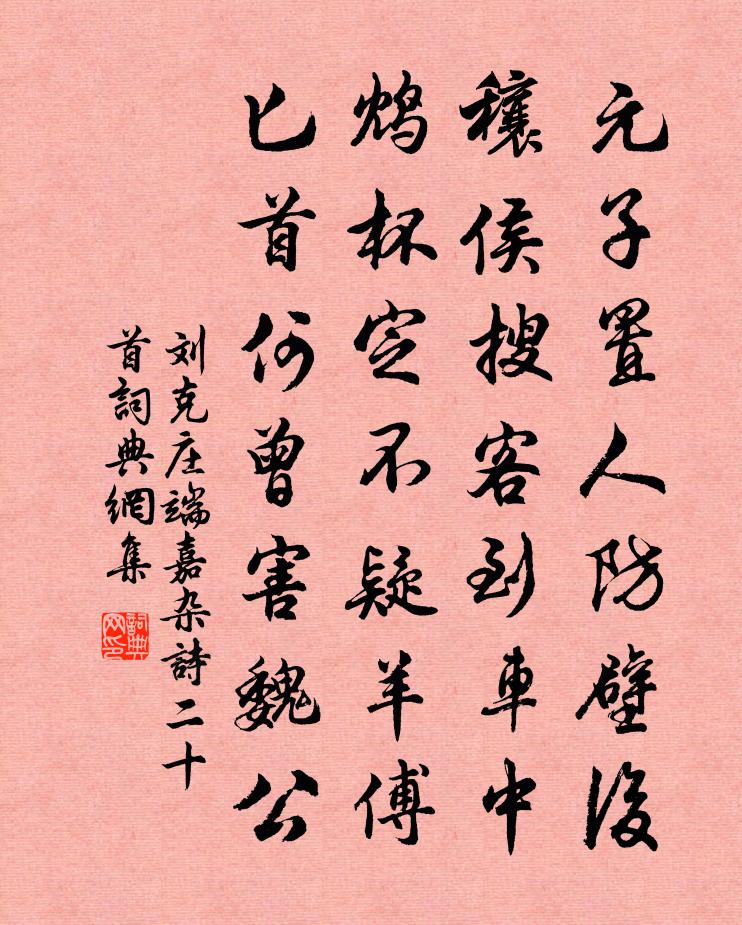 元子置人防壁後
穰侯搜客到車中
鸩杯定不疑羊傅
匕首何曾害魏公
刘克庄端嘉杂詩二十
首詞典網集
詞典网印